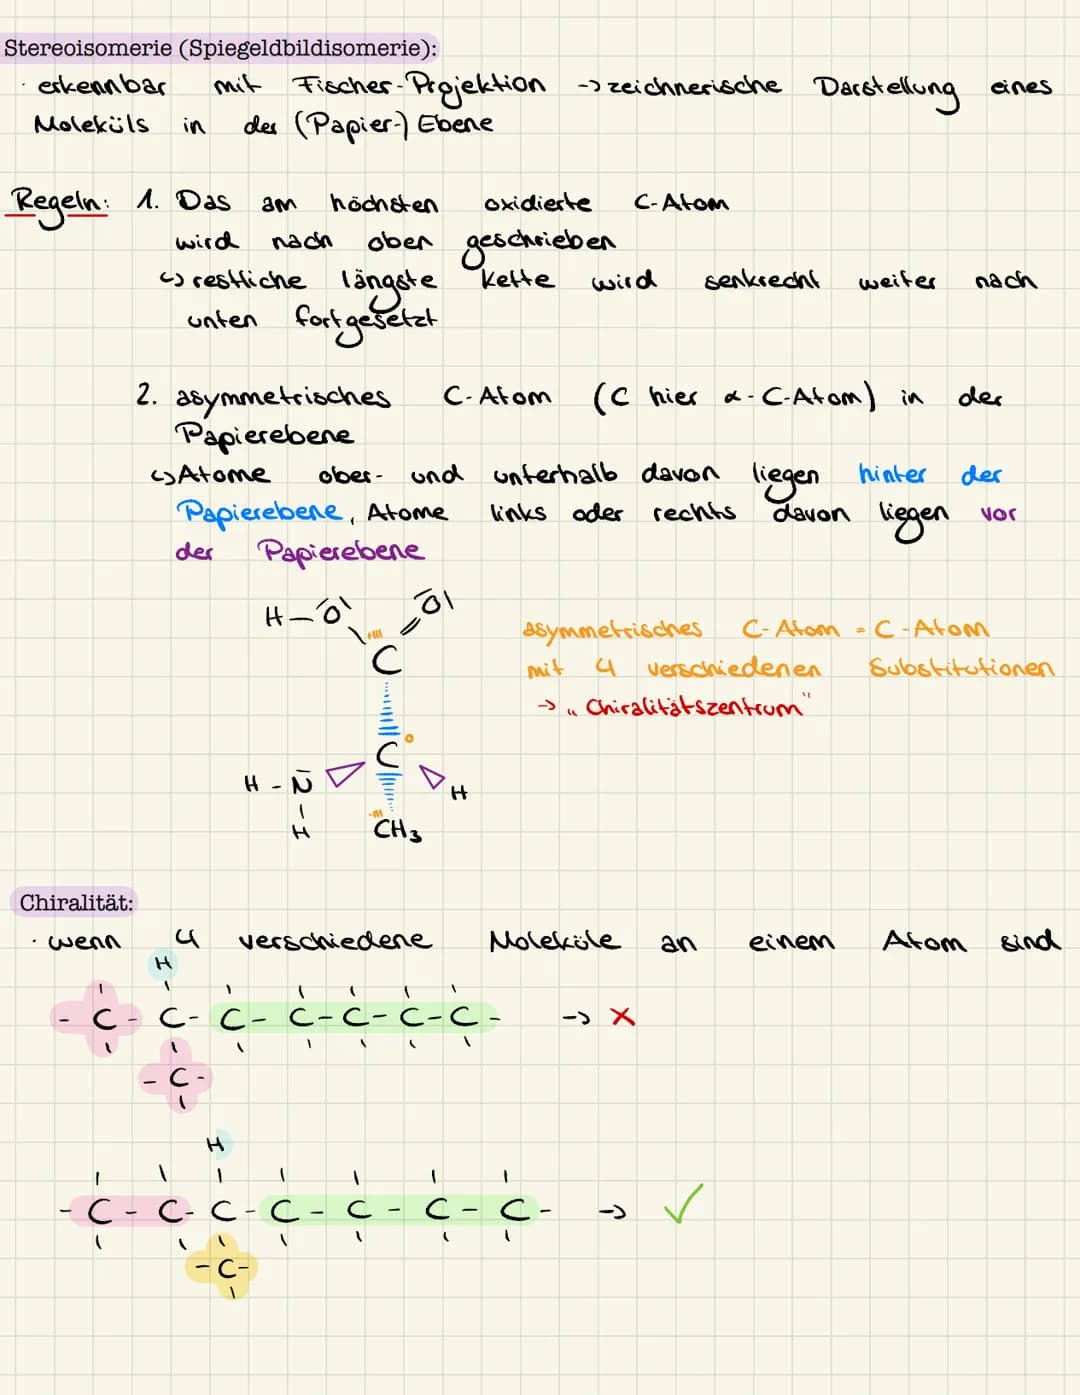 Stereoisomerie (Spiegeldbildisomerie):
· erkennbar mit Fischer-Projektion -> zeichnerische Darstellung eines
Moleküls in der (Papier-) Ebene
Regeln: 1. Das am höchsten oxidierte C-Atom
wird nach oben geschrieben
↳ restliche längste Kette wird senkrecht weiter nach
unten fortgesetzt
2. asymmetrisches C-Atom (C hier α-C-Atom) in der
Papierebene
↳ Atome ober- und unterhalb davon liegen hinter der
Papierebene, Atome links oder rechts davon liegen vor
der Papierebene
H-O O
+III
C
asymmetrisches C-Atom = C-Atom
mit 4 verschiedenen Substitutionen
-> „Chiralitätszentrum"
C 0
H-N H
H
-III
CH3
Chiralität:
· wenn 4 verschiedene Moleküle an einem Atom sind
H
- C - C - C - C - C - C - C - -> X
- C -
H
- C - C - C - C - C - C - C - -> ✓
- C -